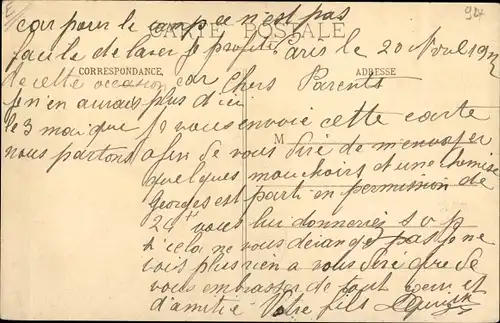 car pour le campe n'est pas
CARTE POSTALE
94
facile de laver Je profite
Paris le 20 Avril 191
CORRESPONDANCE
ADRESSE
de cette occasion car
Chers Parents
Je n'en aurais plus d'ici
le 3 mai que
Je vous envoie cette carte
nous partons
M
afin de vous dire de m'envoyer
quelques mouchoirs et une chemise
Georges est parti en permission de
24 H vous lui donneriez s v p
si cela ne vous dérange pas Je ne
vois plus rien a vous dire que de
vous embrasser de tout coeur et
d'amitié Votre fils